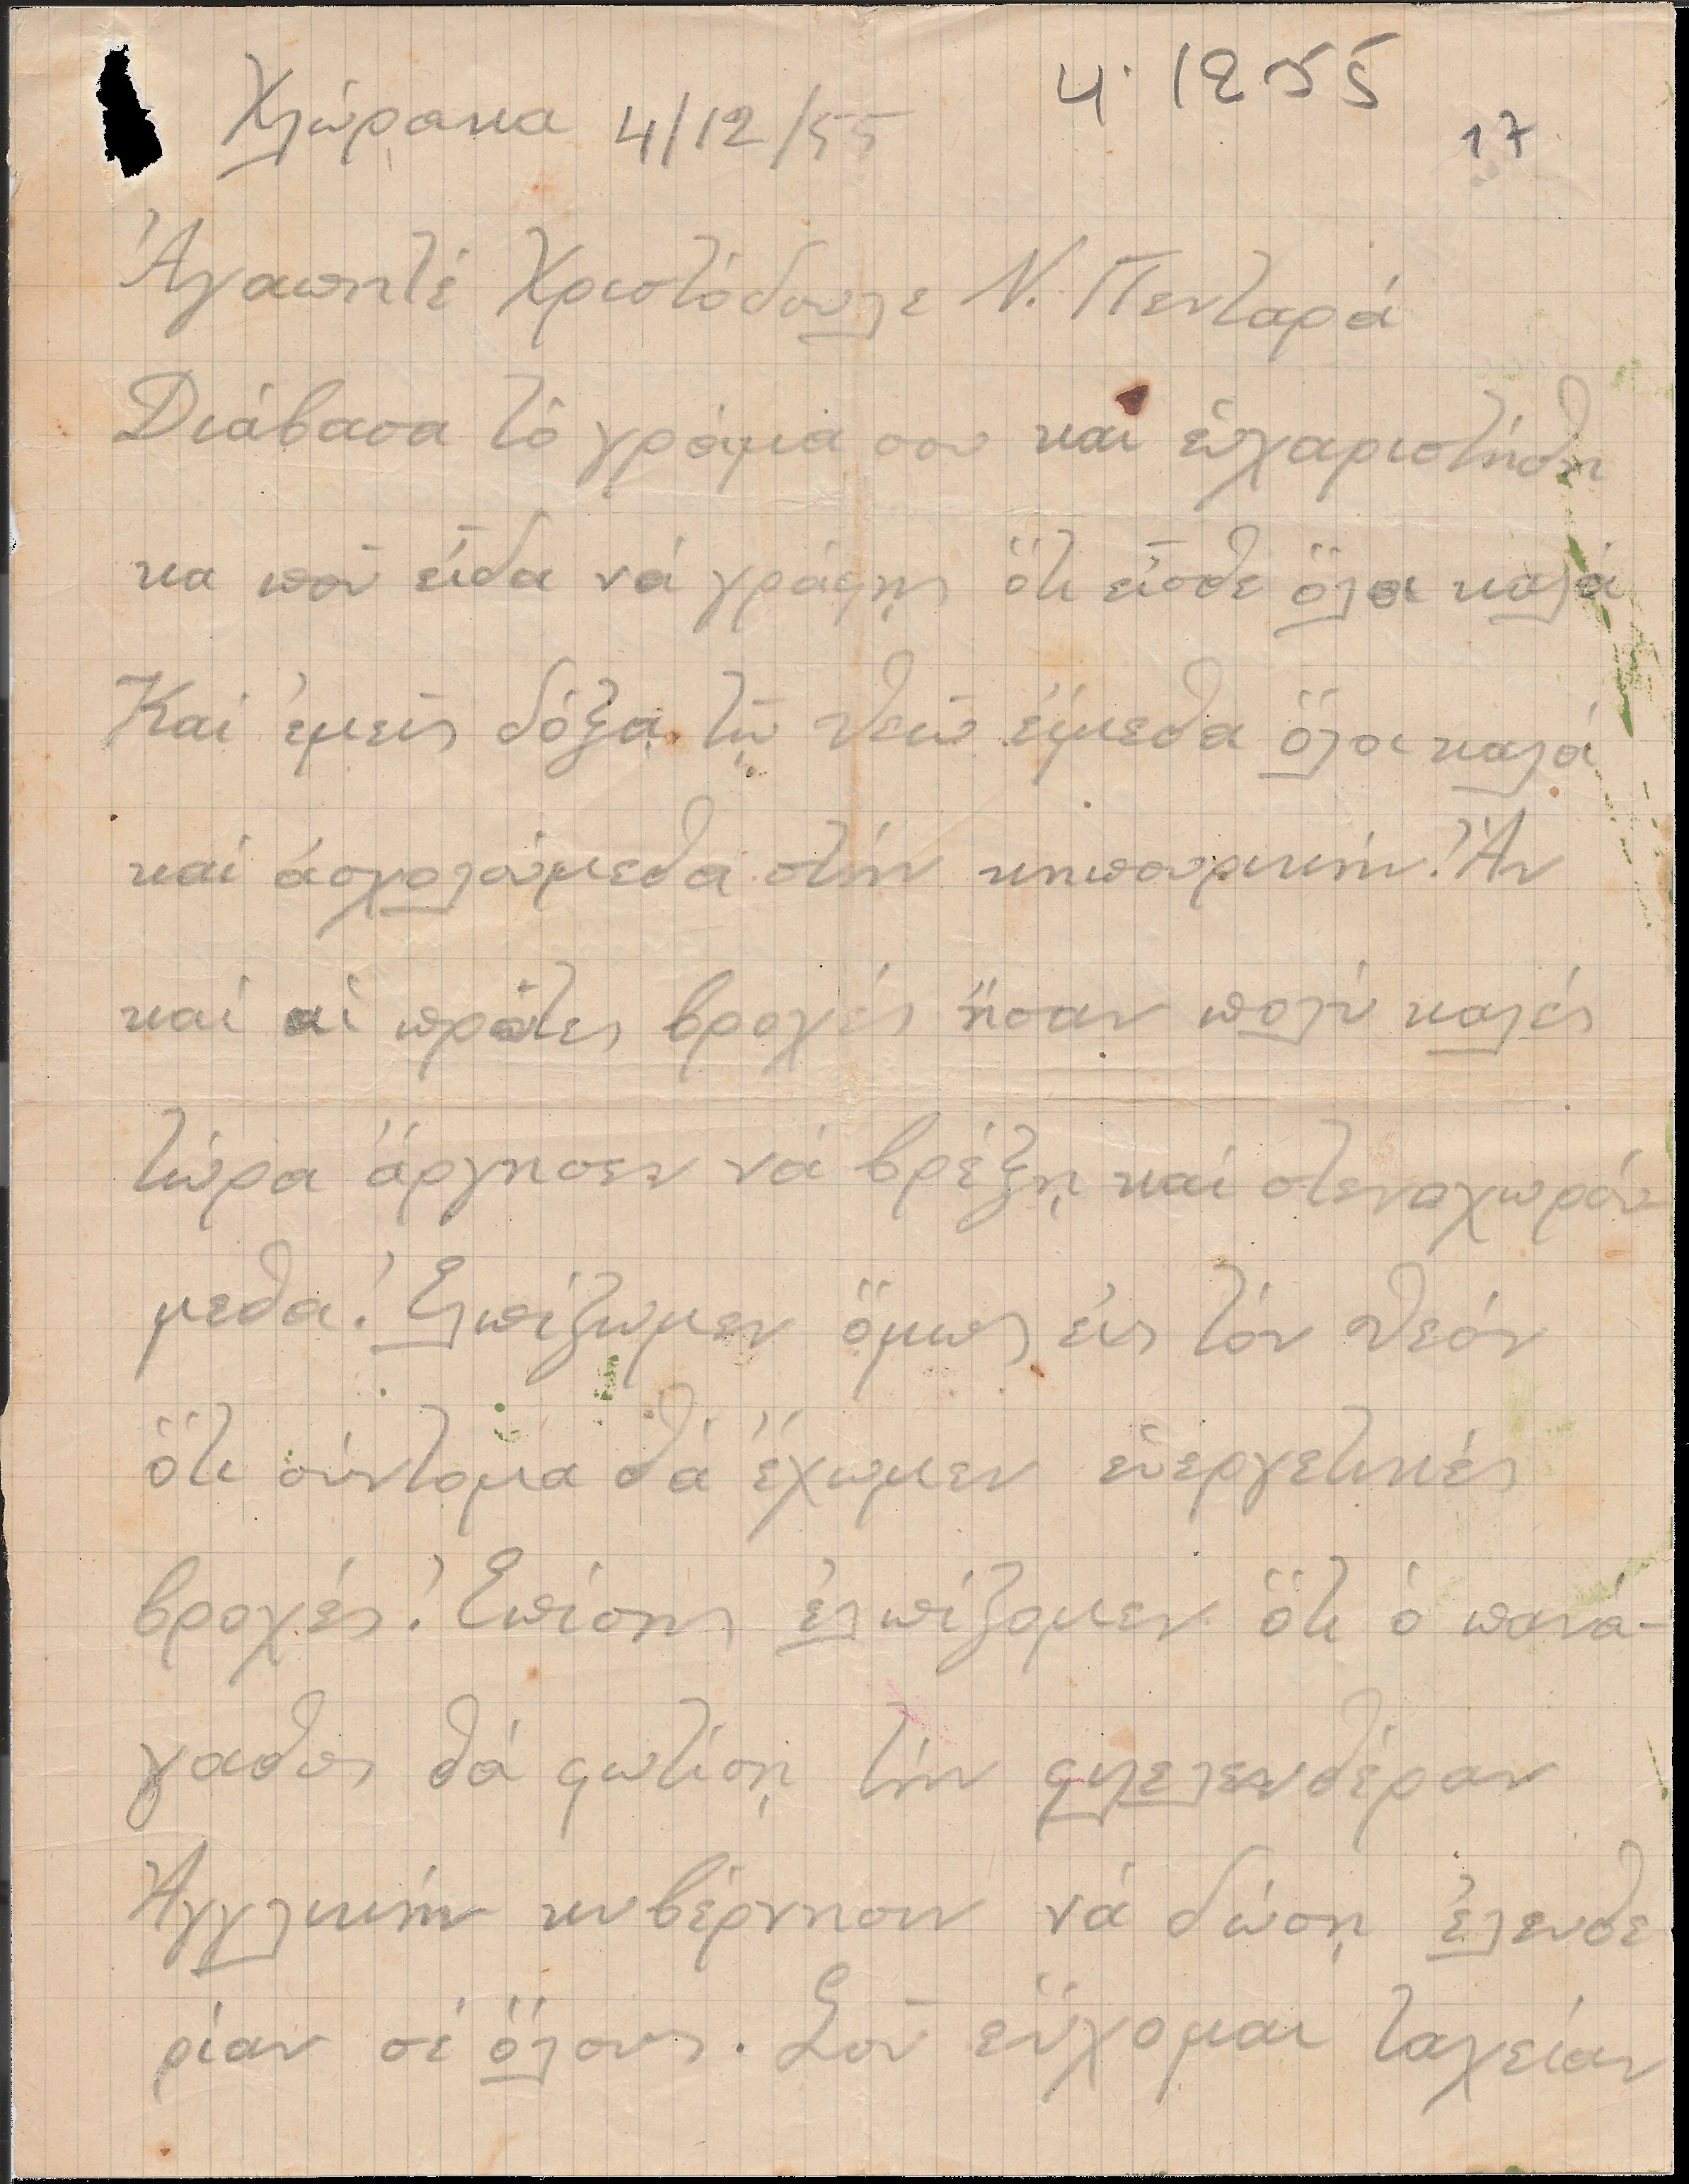 4·1255
17
Χλώρακα 4/12/55
Ἀγαπητέ Χριστόδουλε Ν. Πενταρά
Διάβασα τό γράμμα σου και εὐχαριστήθη
κα ποῦ εἶδα νά γράφῃς ὅτι εἶσθε ὅλοι καλά
Καί ἐμεῖς δόξα τῷ θεῶ εἴμεθα ὅλοι καλά
καί ἀσχολούμεθα στήν κηπουρικήν. Ἄν
καί αἱ πρῶτες βροχές ἦσαν πολύ καλές
τώρα ἄργησεν νά βρέξῃ καί στενοχωρού
μεθα. Ἐλπίζωμεν ὅμως εἰς τόν θεόν
ὅτι σύντομα θά ἔχωμεν εὐεργετικές
βροχές. Ἐπίσης ἐλπίζομεν ὅτι ὁ πανά-
γαθος θά φωτίσῃ τήν φιλελευθέραν
Ἀγγλικήν κυβέρνησιν νά δώσῃ ἐλευθε
ρίαν σέ ὅλους. Σοῦ εὔχομαι ταχείαν